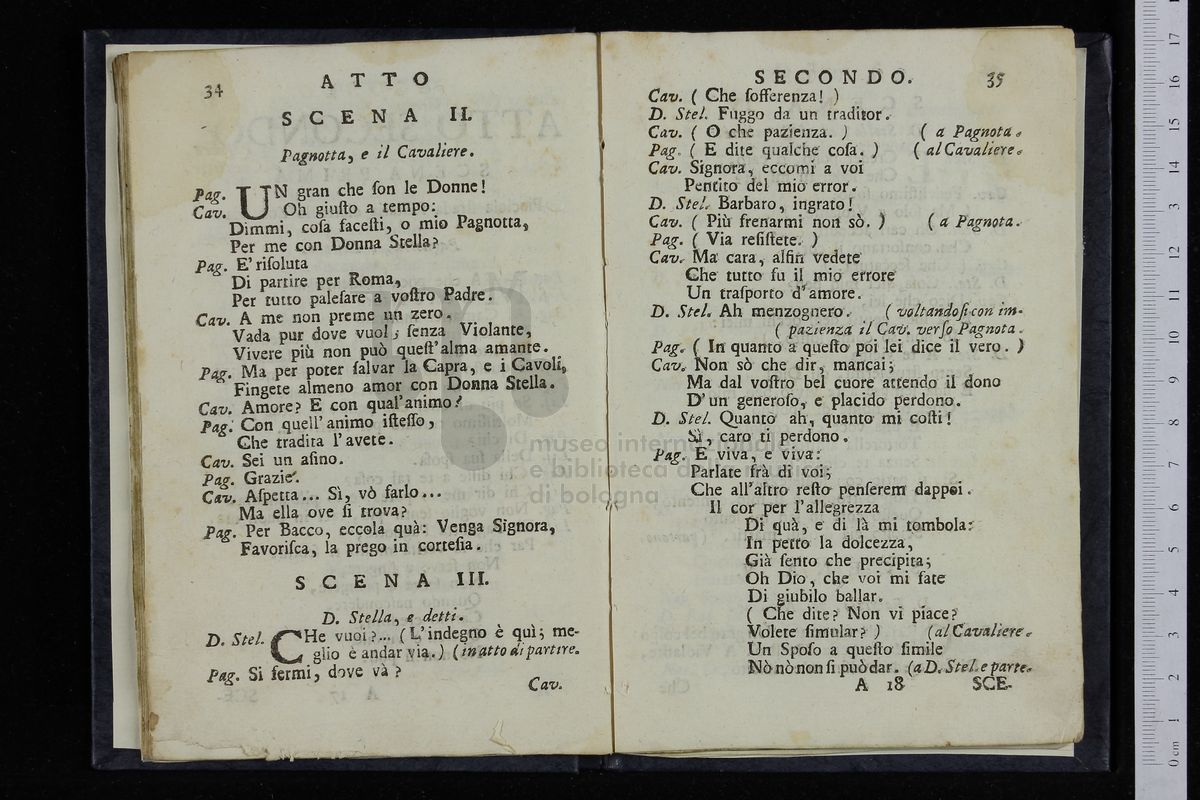 34
ATTO
SCENA II.
Pagnotta, e il Cavaliere.
Pag. UN gran che ſon le Donne!
Cav. Oh giuſto a tempo:
Dimmi, coſa faceſti, o mio Pagnotta,
Per me con Donna Stella?
Pag. E' riſoluta
Di partire per Roma,
Per tutto paleſare a voſtro Padre.
Cav. A me non preme un zero.
Vada pur dove vuol; ſenza Violante,
Vivere più non può queſt'alma amante.
Pag. Ma per poter ſalvar la Capra, e i Cavoli,
Fingete almeno amor con Donna Stella.
Cav. Amore? E con qual'animo?
Pag. Con quell'animo iſteſſo,
Che tradita l'avete.
Cav. Sei un aſino.
Pag. Grazie.
Cav. Aſpetta... Sì, vò farlo...
Ma ella ove ſi trova?
Pag. Per Bacco, eccola quà: Venga Signora,
Favoriſca, la prego in corteſia.
SCENA III.
D. Stella, e detti.
D. Stel. CHe vuoi?... (L'indegno è quì; me-
glio è andar via.) (in atto di partire.
Pag. Si fermi, dove và?
Cav.
SECONDO. 35
Cav. ( Che ſofferenza! )
D. Stel. Fuggo da un traditor.
Cav. ( O che pazienza. ) ( a Pagnota.
Pag. ( E dite qualche coſa. ) ( al Cavaliere.
Cav. Signora, eccomi a voi
Pentito del mio error.
D. Stel. Barbaro, ingrato!
Cav. ( Più frenarmi non sò. ) ( a Pagnota.
Pag. ( Via reſiſtete. )
Cav. Ma cara, alfin vedete
Che tutto fu il mio errore
Un traſporto d'amore.
D. Stel. Ah menzognero. ( voltandoſi con im-
( pazienza il Cav. verſo Pagnota.
Pag. ( In quanto a queſto poi lei dice il vero. )
Cav. Non sò che dir, mancai;
Ma dal voſtro bel cuore attendo il dono
D'un generoſo, e placido perdono.
D. Stel. Quanto ah, quanto mi coſti!
Sì, caro ti perdono.
Pag. E viva, e viva:
Parlate frà di voi;
Che all'altro reſto penſerem dappoi.
Il cor per l'allegrezza
Di quà, e di là mi tombola:
In petto la dolcezza,
Già ſento che precipita;
Oh Dio, che voi mi fate
Di giubilo ballar.
( Che dite? Non vi piace?
Volete ſimular? ) (al Cavaliere.
Un Spoſo a queſto ſimile
Nò nò non ſi può dar. (a D. Stel. e parte.
A 18 SCE-
museo internazionale
e biblioteca d
di bologna